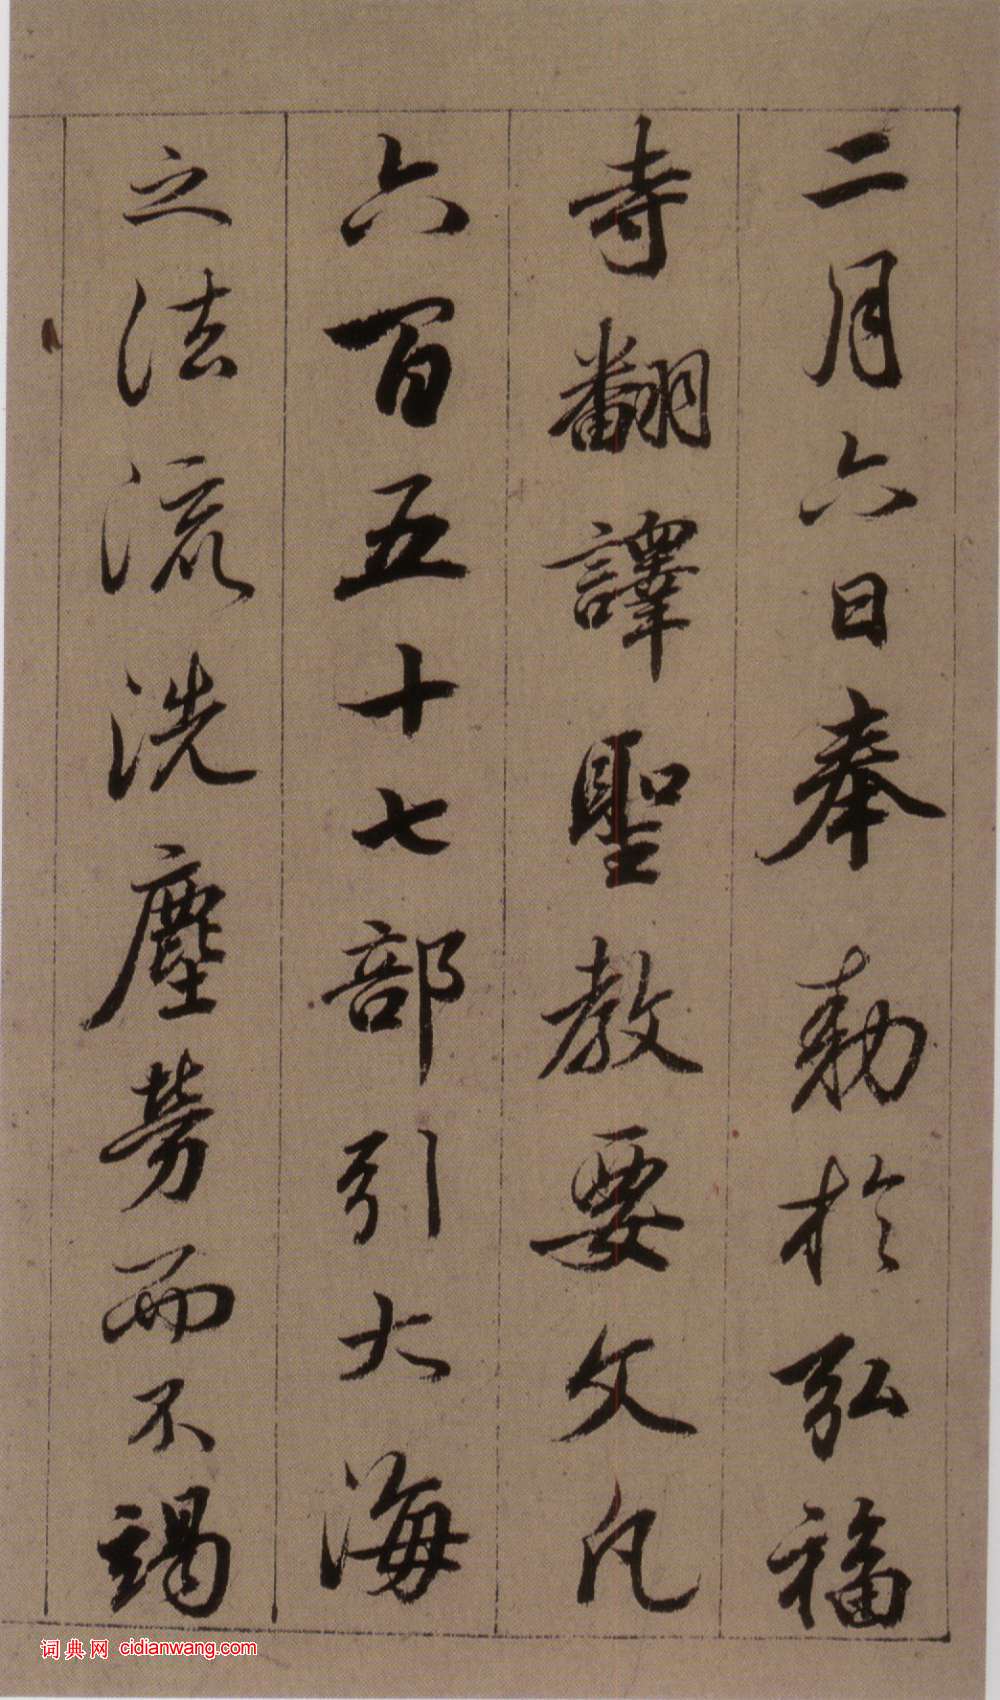 二月六日奉敕於弘福
寺翻譯聖教要文凡
六百五十七部引大海
之法流洗塵勞而不竭
词典网 cidianwang.com